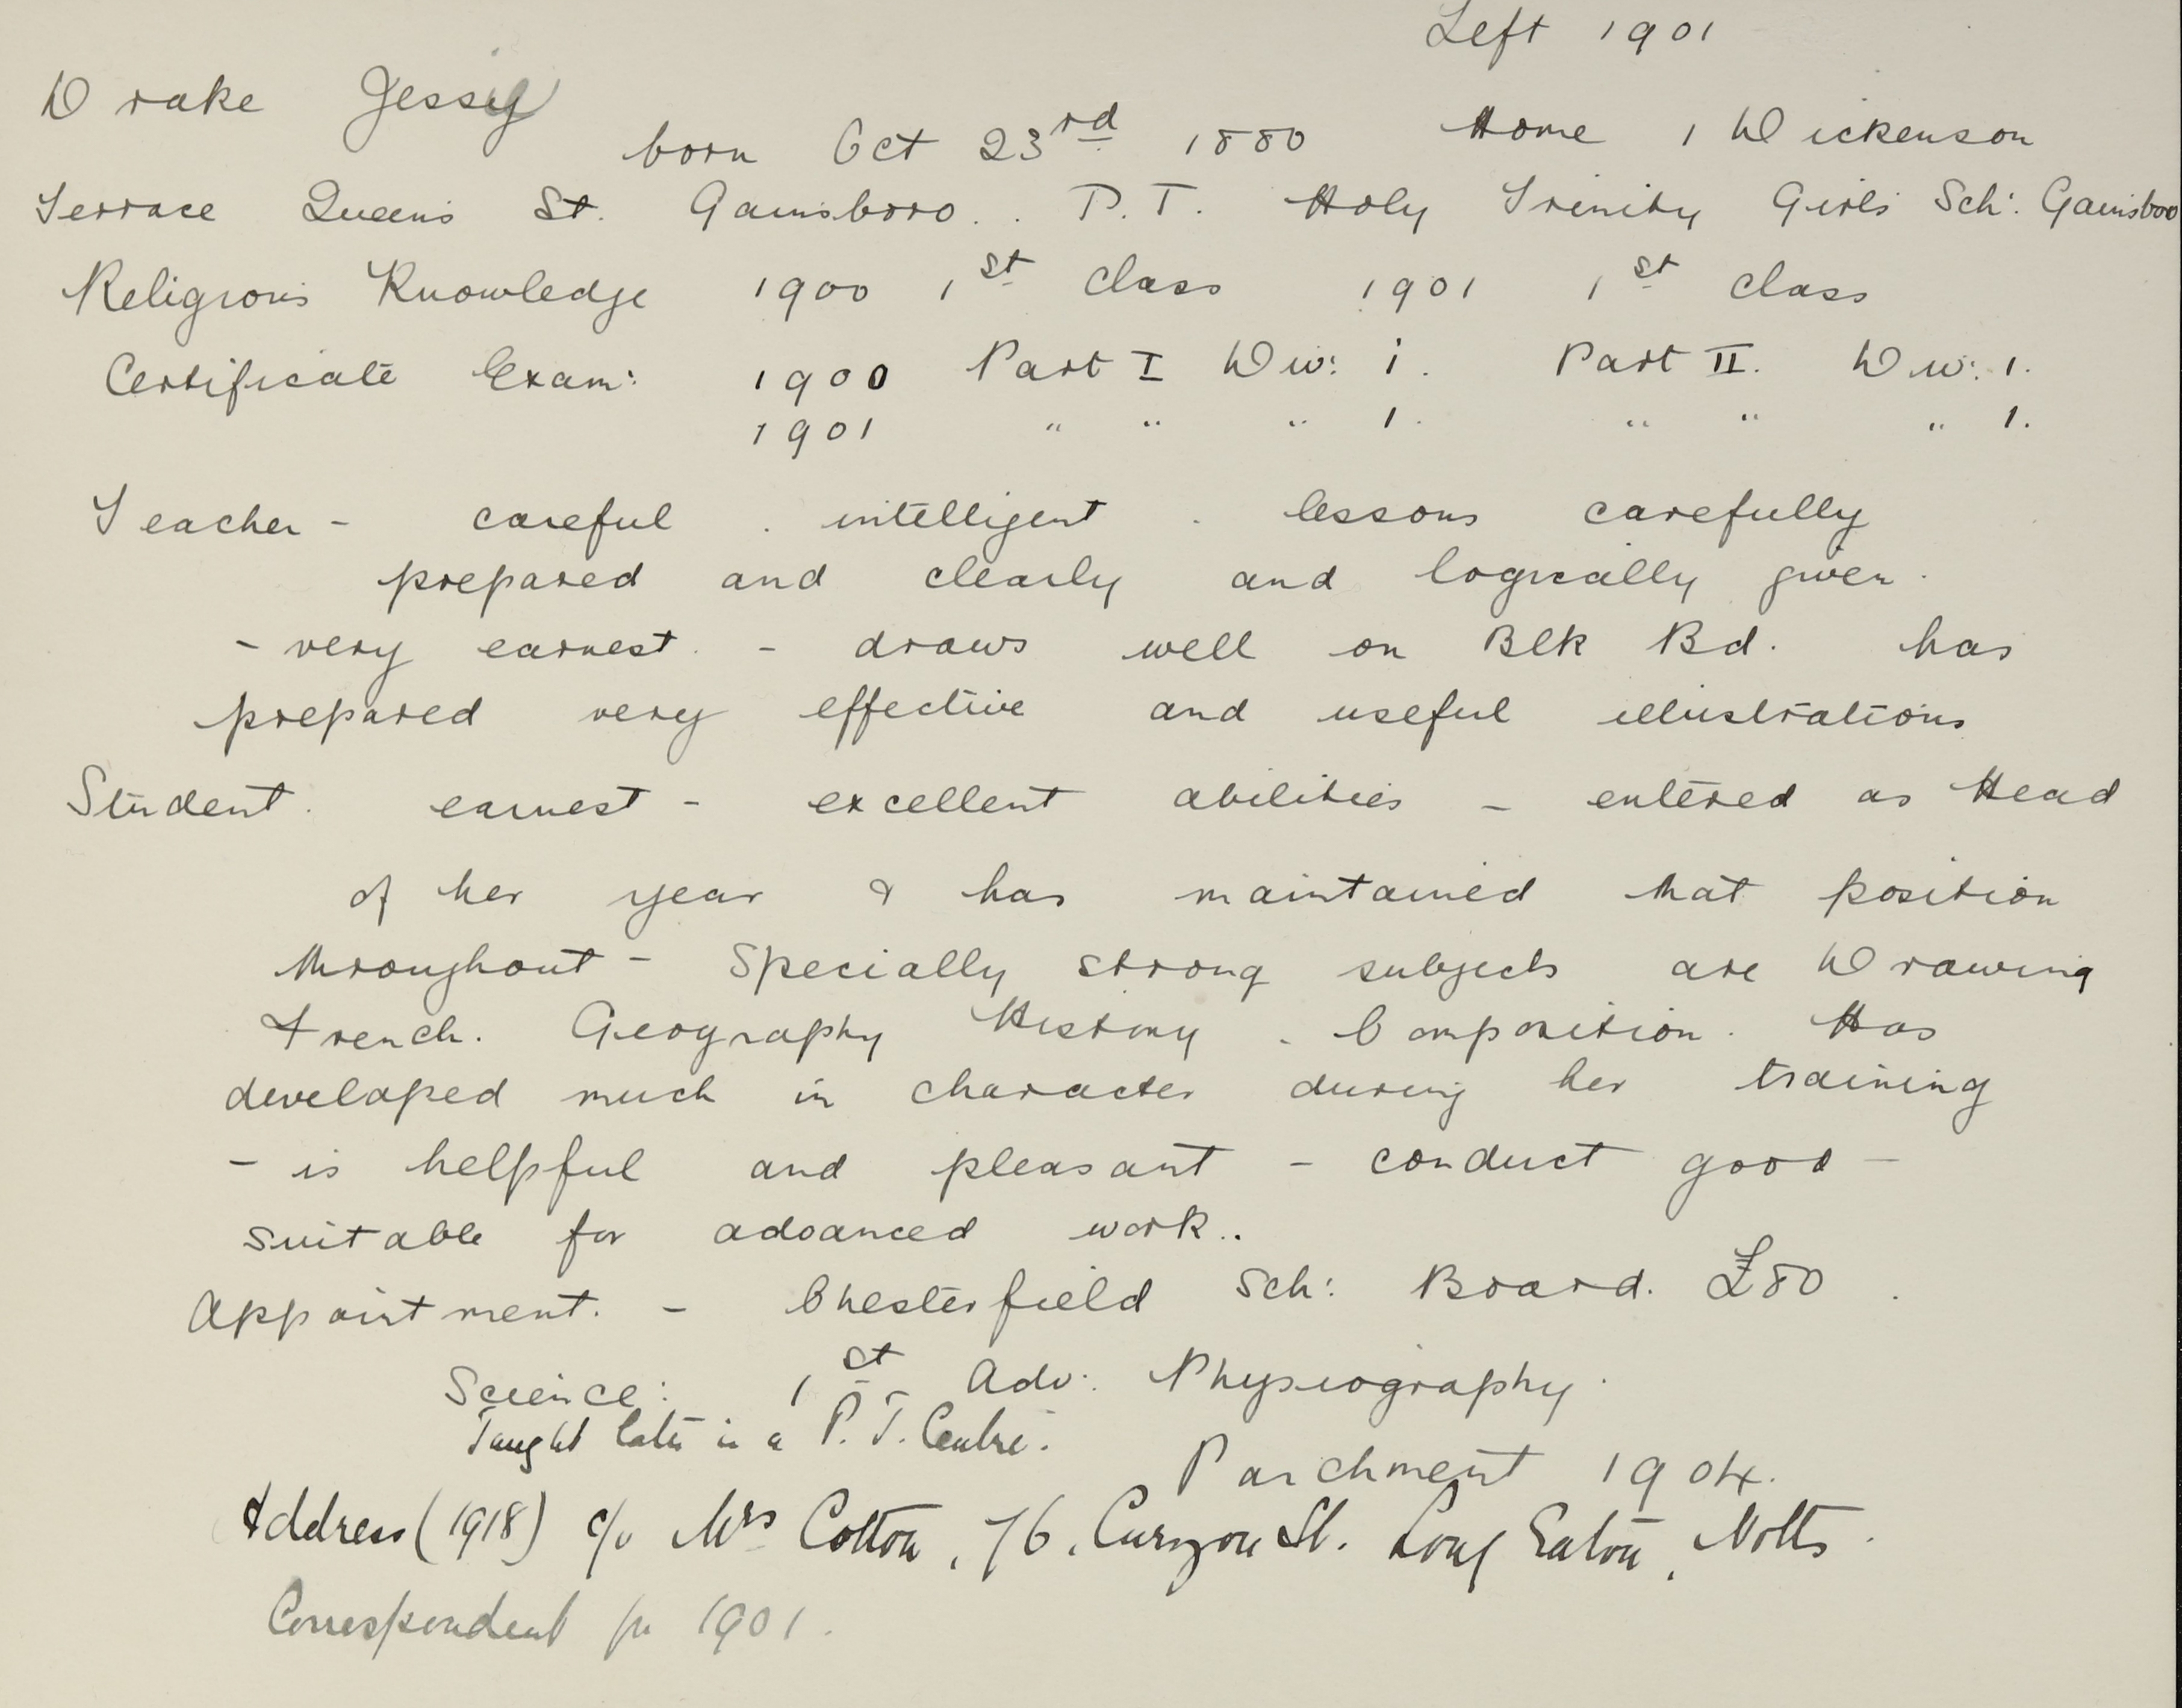 Left 1901
Drake Jessy
born Oct 23rd 1880 Home 1 Dickenson
Terrace Queens St. Gainsboro. . P.T. Holy Trinity Girls Sch: Gainsboro
Religious Knowledge 1900 1st class 1901 1st class
Certificate Exam: 1900 Part I Div: i. Part II. Div: 1.
1901 " " " 1. " " " 1.
Teacher - careful . intelligent . lessons carefully
prepared and clearly and logically given.
- very earnest. - draws well on Blk Bd. has
prepared very effective and useful illustrations
Student. earnest - excellent abilities - entered as Head
of her year & has maintained that position
throughout - Specially strong subjects are Drawing
French. Geography History . Composition. Has
developed much in character during her training
- is helpful and pleasant - conduct good -
suitable for advanced work..
Appointment. - Chesterfield Sch: Board. £80 .
Science: 1st Adv: Physiography.
Taught later in a P.T. Centre.
Parchment 1904.
Address (1918) c/o Mrs Cotton, 76, Curzon St. Long Eaton, Notts.
Correspondent for 1901.